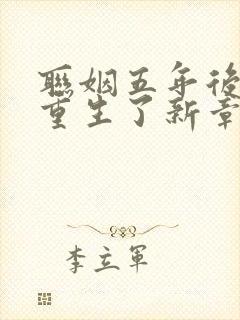 聯姻五年後
重生了新章
李立軍